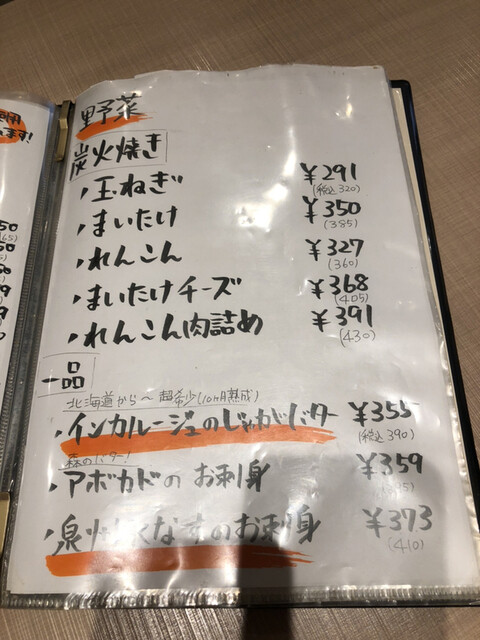 野菜
炭火焼き
・玉ねぎ ¥291
(税込 320)
・まいたけ ¥350
(385)
・れんこん ¥327
(360)
・まいたけチーズ ¥368
(405)
・れんこん肉詰め ¥391
(430)
一品
北海道から〜 超希少(10ヶ月熟成)
・インカルージュのじゃがバター ¥355
(税込 390)
森のバター!
・アボカドのお刺身 ¥359
・泉州水なすのお刺身 ¥373
(410)